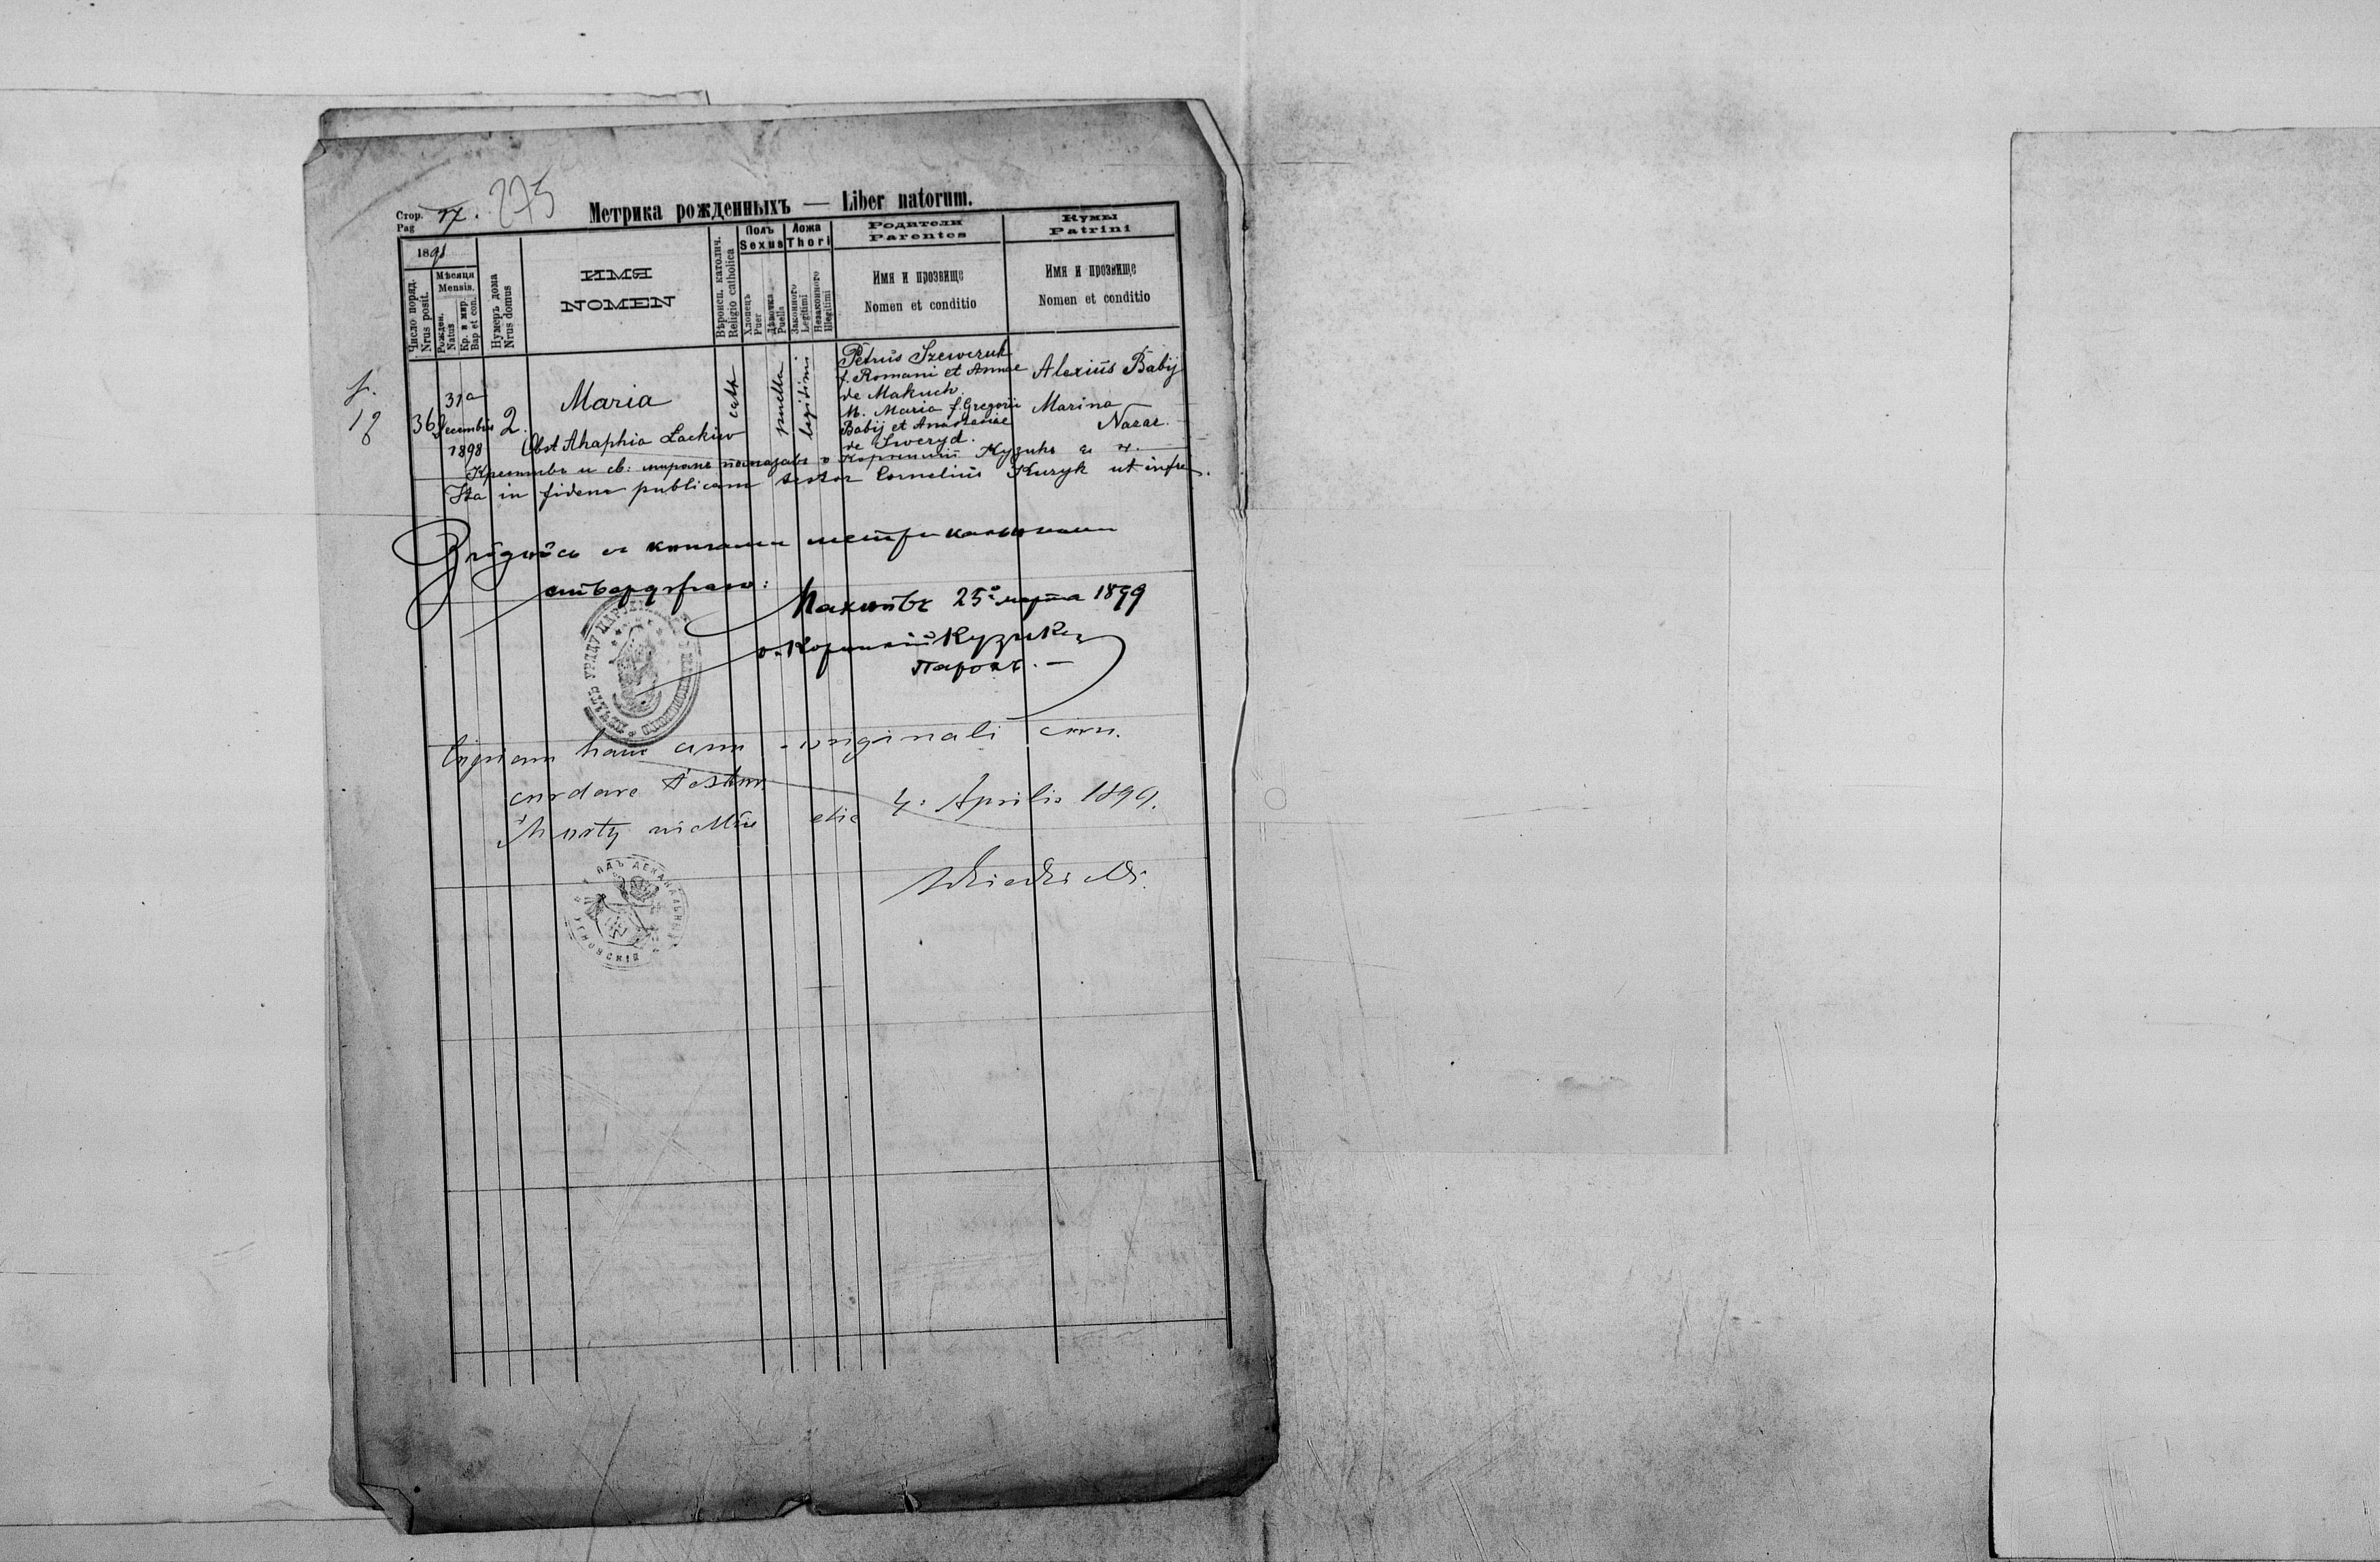 Стор. Pag 17. 275
Метрика рожденныхъ — Liber natorum.
1898
Число поряд. Nrus posit.
Мѣсяця Mensis.
Рожден. Natus
Кр. и мир. Bap et con.
Нумеръ дома Nrus domus
ИМЯ
NOMEN
Вѣроисп. католич. Religio catholica
Полъ Sexus
Хлопецъ Puer
Дѣвочка Puella
Ложа Thori
Законного Legitimi
Незаконного Illegitimi
Родители
Parentes
Имя и прозвище
Nomen et conditio
Кумы
Patrini
Имя и прозвище
Nomen et conditio
36
31a
Decembris
1898
2.
Maria
Obst Ahaphia Lackiw
cath
puella
legitimi
Petrus Szewczuk
f. Romani et Annae
de Makuch.
M. Maria f. Gregorii
Babij et Anastasiae
de Sweryd.
Alexius Babij
Marina
Nazar.
Крестивъ и св. миромъ помазавъ о Корнилій Кузикъ
Ita in fidem publicam testor Cornelius Kuzyk ut infra.
Згôднôсть съ книгами метрикальными
ствердж­аю:
25го марта 1899
о. Корнилій Кузикъ
парохъ. —
Copiam hanc cum originali con-
cordare testor
die 4: Aprilis 1899.